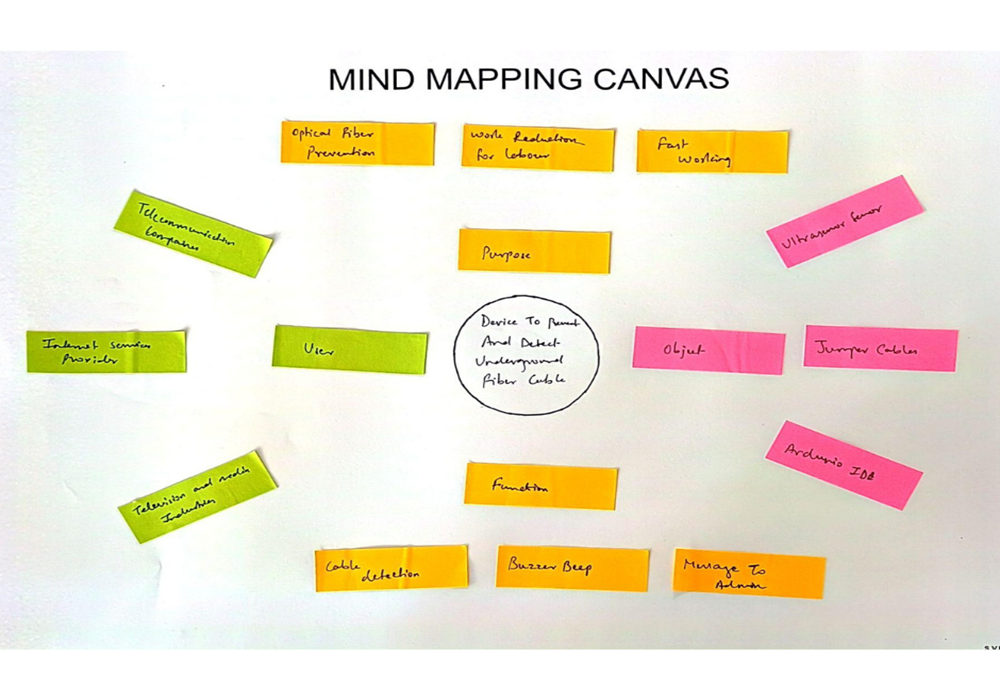 MIND MAPPING CANVAS
Optical Fiber
Prevention
Work Reduction
for Labour
Fast
Working
Telecommunication
Companies
Purpose
Ultrasonor Sensor
Internet services
Provider
User
Device To Prevent
And Detect
Underground
Fiber Cable
Object
Jumper Cables
Television and media
Industries
Function
Arduino IDE
Cable
detection
Buzzer Beep
Message To
Admin